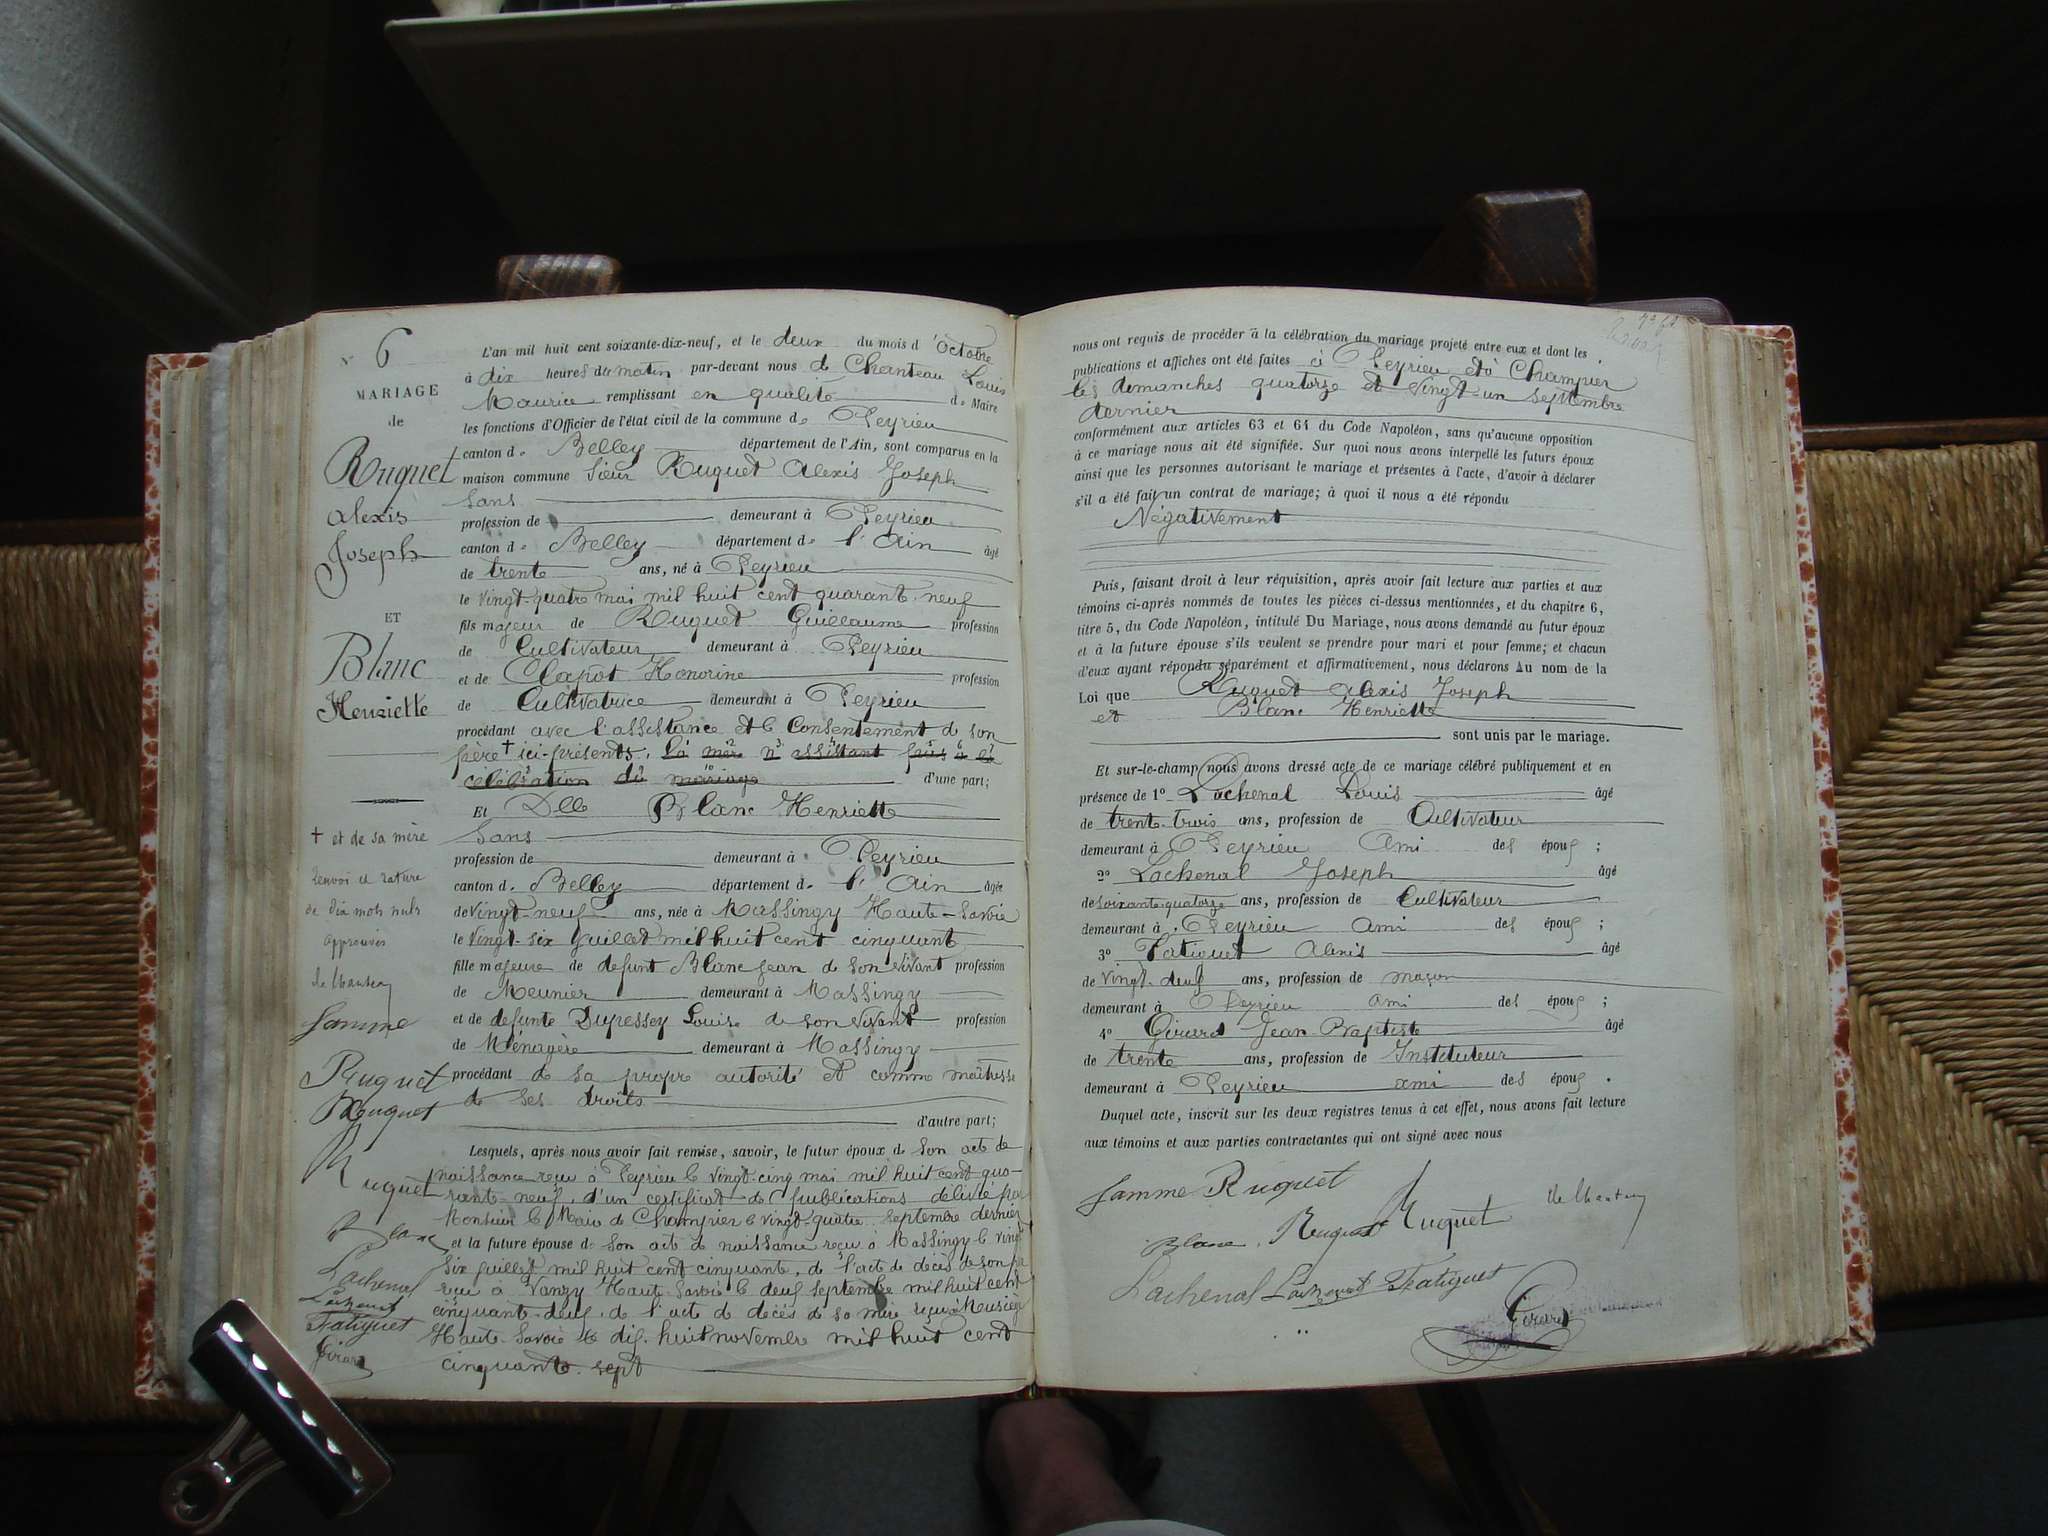 N° 6
MARIAGE
de
Ruquet
Alexis
Joseph
ET
Blanc
Henriette
+ et de sa mère
renvoi et rature
de dix mots nuls
approuvés
de Chanteau
Jamme
Ruquet
Ruquet
Ruquet
Blanc
Lachenal
Lachenal
Fatiguet
Girard
L'an mil huit cent soixante-dix-neuf, et le deux du mois d'Octobre
à dix heures du matin par-devant nous de Chanteau Louis
Maurice remplissant en qualité de Maire
les fonctions d'Officier de l'état civil de la commune de Peyrieu
canton de Belley département de l'Ain, sont comparus en la
maison commune Sieur Ruquet Alexis Joseph
Sans
profession de demeurant à Peyrieu
canton de Belley département de l'Ain âgé
de trente ans, né à Peyrieu
le vingt-quatre mai mil huit cent quarante-neuf
fils majeur de Ruquet Guillaume profession
de Cultivateur demeurant à Peyrieu
et de Clapot Honorine profession
de Cultivatrice demeurant à Peyrieu
procédant avec l'assistance et le Consentement de son
père + ici présents. La mère n'assistant pas à la
célébration du mariage d'une part;
Et Dlle Blanc Henriette
Sans
profession de demeurant à Peyrieu
canton de Belley département de l'Ain âgée
de vingt-neuf ans, née à Massingy Haute-Savoie
le vingt-six Juillet mil huit cent cinquante
fille majeure de defunt Blanc Jean de son vivant profession
de Meunier demeurant à Massingy
et de defunte Dupessey Louise de son vivant profession
de Ménagère demeurant à Massingy
procédant de sa propre autorité et comme maîtresse
de ses droits
d'autre part;
Lesquels, après nous avoir fait remise, savoir, le futur époux de son acte de
naissance reçu à Peyrieu le vingt-cinq mai mil huit cent qua-
rante-neuf, d'un certificat de publications délivré par
Monsieur le Maire de Champier le vingt-quatre septembre dernier
et la future épouse de son acte de naissance reçu à Massingy le vingt
six juillet mil huit cent cinquante, de l'acte de décès de son père
reçu à Vanzy Haute Savoie le deux septembre mil huit cent
cinquante-deux, de l'acte de décès de sa mère reçu à Musièges
Haute-Savoie le dix-huit novembre mil huit cent
cinquante-sept
nous ont requis de procéder à la célébration du mariage projeté entre eux et dont les
publications et affiches ont été faites à Peyrieu et à Champier
les dimanches quatorze et vingt-un septembre
dernier
conformément aux articles 63 et 64 du Code Napoléon, sans qu'aucune opposition
à ce mariage nous ait été signifiée. Sur quoi nous avons interpellé les futurs époux
ainsi que les personnes autorisant le mariage et présentes à l'acte, d'avoir à déclarer
s'il a été fait un contrat de mariage; à quoi il nous a été répondu
Négativement
Puis, faisant droit à leur réquisition, après avoir fait lecture aux parties et aux
témoins ci-après nommés de toutes les pièces ci-dessus mentionnées, et du chapitre 6,
titre 5, du Code Napoléon, intitulé Du Mariage, nous avons demandé au futur époux
et à la future épouse s'ils veulent se prendre pour mari et pour femme; et chacun
d'eux ayant répondu séparément et affirmativement, nous déclarons Au nom de la
Loi que Ruquet Alexis Joseph
et Blanc Henriette
sont unis par le mariage.
Et sur-le-champ nous avons dressé acte de ce mariage célébré publiquement et en
présence de 1° Lachenal Louis âgé
de trente-trois ans, profession de Cultivateur
demeurant à Peyrieu Ami des époux ;
2° Lachenal Joseph âgé
de soixante-quatorze ans, profession de Cultivateur
demeurant à Peyrieu Ami des époux ;
3° Fatiguet Alexis âgé
de vingt-deux ans, profession de maçon
demeurant à Peyrieu Ami des époux ;
4° Girard Jean Baptiste âgé
de trente ans, profession de Instituteur
demeurant à Peyrieu ami des époux .
Duquel acte, inscrit sur les deux registres tenus à cet effet, nous avons fait lecture
aux témoins et aux parties contractantes qui ont signé avec nous
Jamme Ruquet
Blanc Ruquet Ruquet de Chanteau
Lachenal Lachenal Fatiguet
Girard